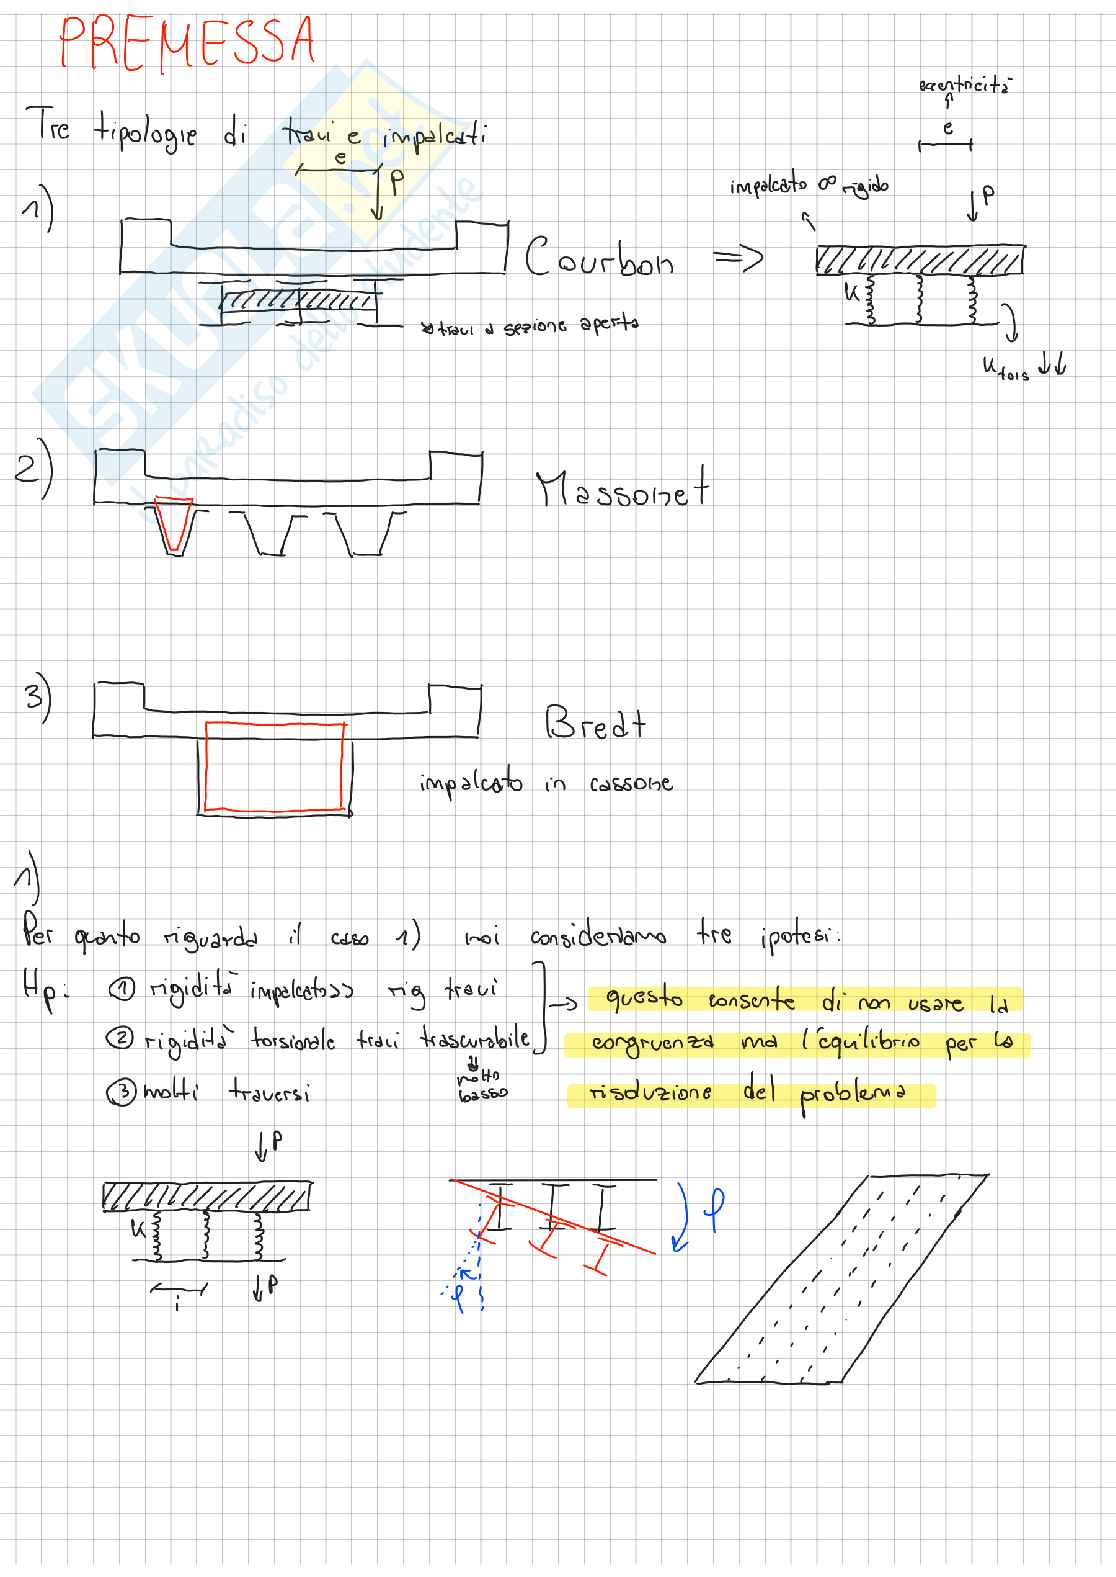 PREMESSA
Tre tipologie di travi e impalcati
eccentricità
e
e
P
1)
impalcato ∞ rigido
P
Courbon ⇒
K
→ travi a sezione aperta
K tors ↓↓
2)
Massonet
3)
Bredt
impalcato in cassone
1)
Per quanto riguarda il caso 1) noi consideriamo tre ipotesi:
Hp: ① rigidità impalcato >> rig travi → questo consente di non usare la
② rigidità torsionale travi trascurabile congruenza ma l'equilibrio per la
⇓ molto basso
③ molti traversi risoluzione del problema
P
K
φ
P
i
φ
SKUOLA.net
il paradiso dello studente